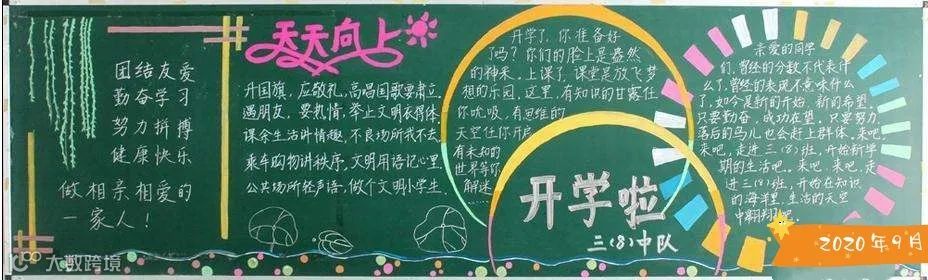 团结友爱
勤奋学习
努力拼搏
健康快乐
做相亲相爱的
一家人！
天天向上
升国旗，应敬礼，高唱国歌要肃立。
遇朋友，要热情，举止文明衣得体
课余生活讲情趣，不良场所我不去
乘车购物讲秩序，文明用语记心里
公共场所轻声语，做个文明小学生.
开学了，你准备好
了吗？你们的脸上是盎然
的神采，上课了，课堂是放飞梦
想的乐园，这里，有知识的甘露任
你吮吸，有思维的
天空任你开启
有未知的
世界等你
解迷.
开学啦
三(8)中队
亲爱的同学
们，曾经的分数不代表什
么了，曾经的表现不意味什么
了，如今是新的开始，新的希望.
只要勤奋，成功在望。只要努力，
落后的马儿也会赶上群体。来吧，
来吧，走进三(8)班，开始新学
期的生活吧。来吧，来吧，走
进三(8)班，开始在知识
的海洋里，生活的天空
中翱翔吧.
2020年9月
大数跨境